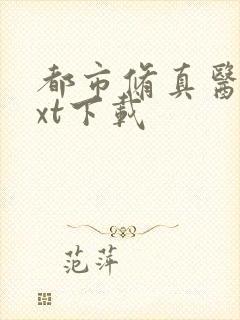 都市修真醫
xt下載
范萍